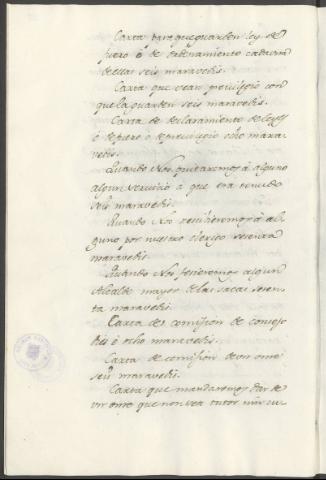 Carta para que guarden ley de
fuero ò de ordenamiento cada una
de ellas seis maravedis.
Carta que vean previlegio con
que la guarden seis maravedis.
Carta de declaramiento de leyes
ò de fuero ò de previlegio ocho mara-
vedis.
Quando Nos quitaremos à alguno
algun servicio à que era tenudo
seis maravedis.
Quando Nos recibieremos à al-
guno por nuestro clerigo sesenta
maravedis.
Quando Nos ficieremos algun
Alcalde mayor de las sacas sesen-
ta maravedis.
Carta de comision de concejo
ocho maravedis.
Carta de comision de un ome
seis maravedis.
Carta que mandaremos dar de
un ome que non sea tutor nin cu-